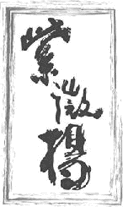 紫微楊